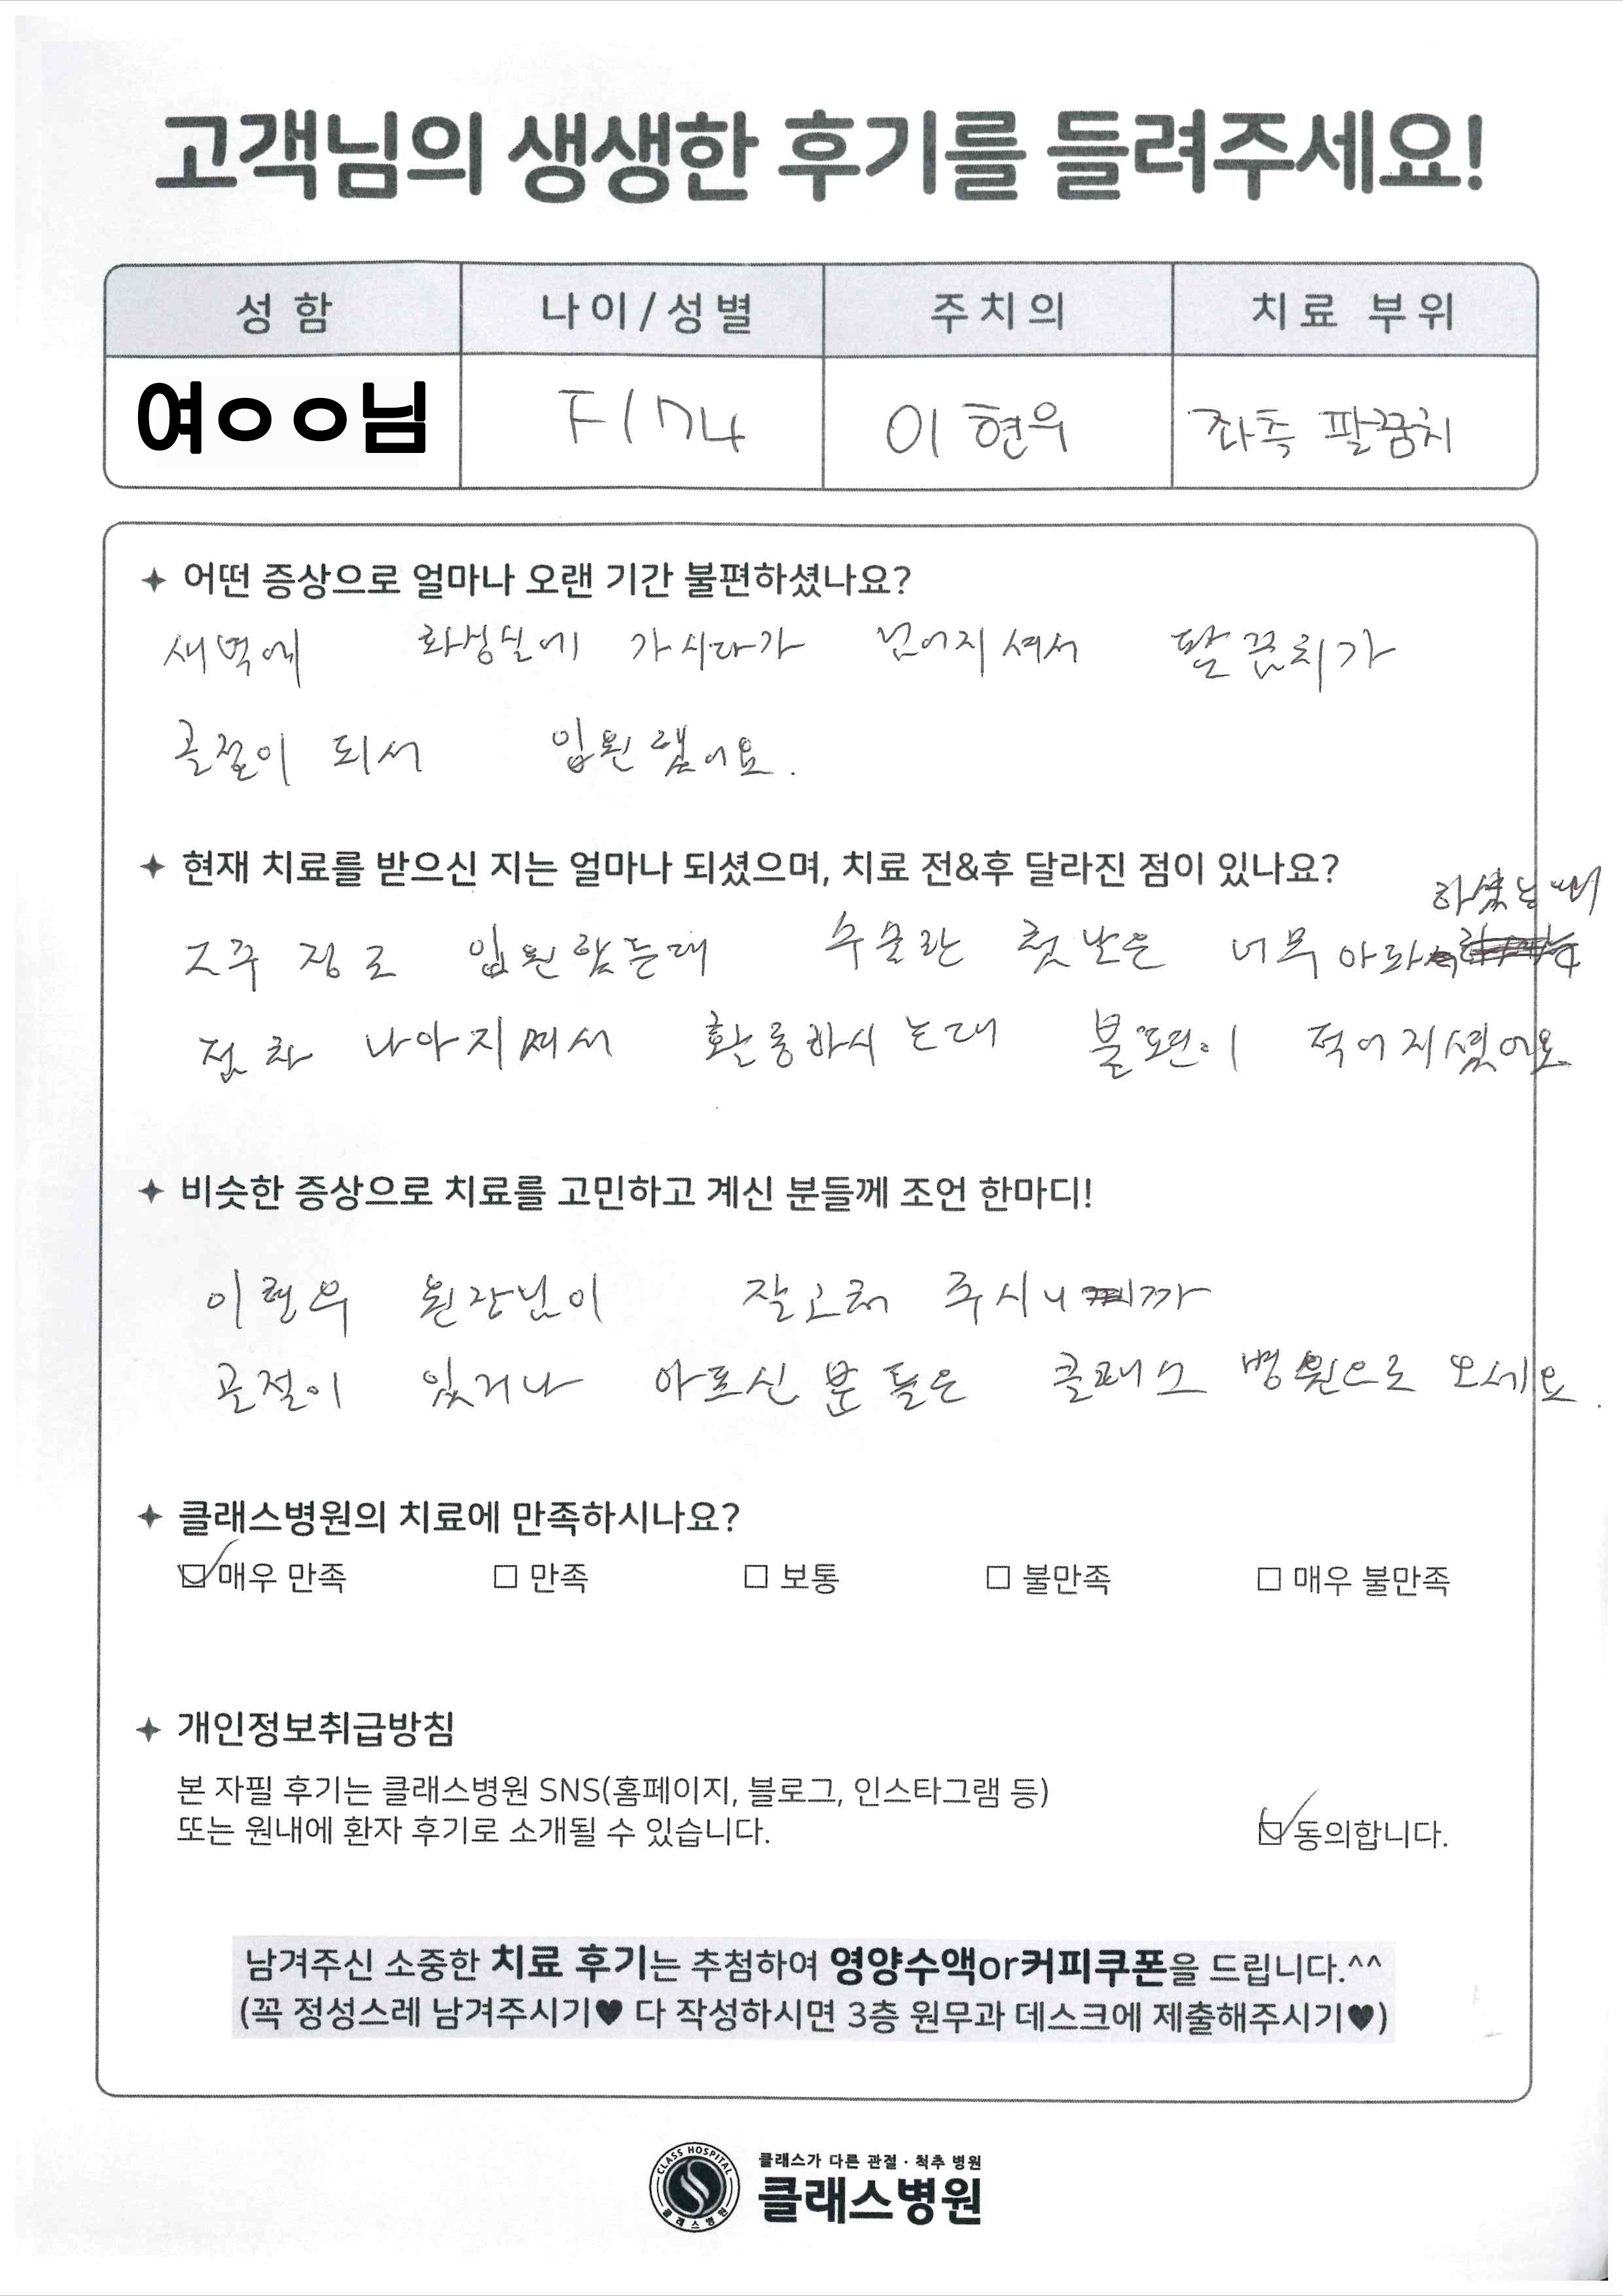 고객님의 생생한 후기를 들려주세요!
성 함 나이/성별 주치의 치료 부위
여ㅇㅇ님 F/74 이현우 좌측 팔꿈치
어떤 증상으로 얼마나 오랜 기간 불편하셨나요?
새벽에 화장실에 가시다가 넘어지셔서 팔꿈치가
골절이 되서 입원했어요.
현재 치료를 받으신 지는 얼마나 되셨으며, 치료 전&후 달라진 점이 있나요?
하셨는데
2주 정도 입원했는데 수술한 첫날은 너무 아파
점차 나아지셔서 활동하시는데 불편이 적어지셨어요
비슷한 증상으로 치료를 고민하고 계신 분들께 조언 한마디!
이현우 원장님이 잘고쳐 주시니까
골절이 있거나 아프신 분들은 클래스 병원으로 오세요.
클래스병원의 치료에 만족하시나요?
매우 만족 만족 보통 불만족 매우 불만족
개인정보취급방침
본 자필 후기는 클래스병원 SNS(홈페이지, 블로그, 인스타그램 등)
또는 원내에 환자 후기로 소개될 수 있습니다.
동의합니다.
남겨주신 소중한 치료 후기는 추첨하여 영양수액or커피쿠폰을 드립니다.^^
(꼭 정성스레 남겨주시기♥ 다 작성하시면 3층 원무과 데스크에 제출해주시기♥)
CLASS HOSPITAL
클래스병원
클래스가 다른 관절·척추 병원
클래스병원